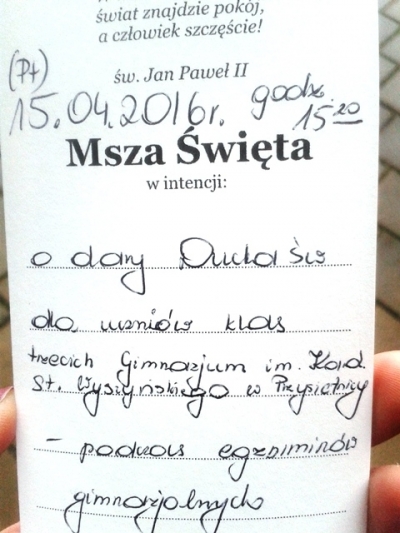 świat znajdzie pokój,
a człowiek szczęście!
św. Jan Paweł II
(Pt)
15.04.2016r. godz. 15²⁰
Msza Święta
w intencji:
o dary Ducha Św
dla uczniów klas
trzecich Gimnazjum im. Kard.
St. Wyszyńskiego w Przysietnicy
- podczas egzaminów
gimnazjalnych